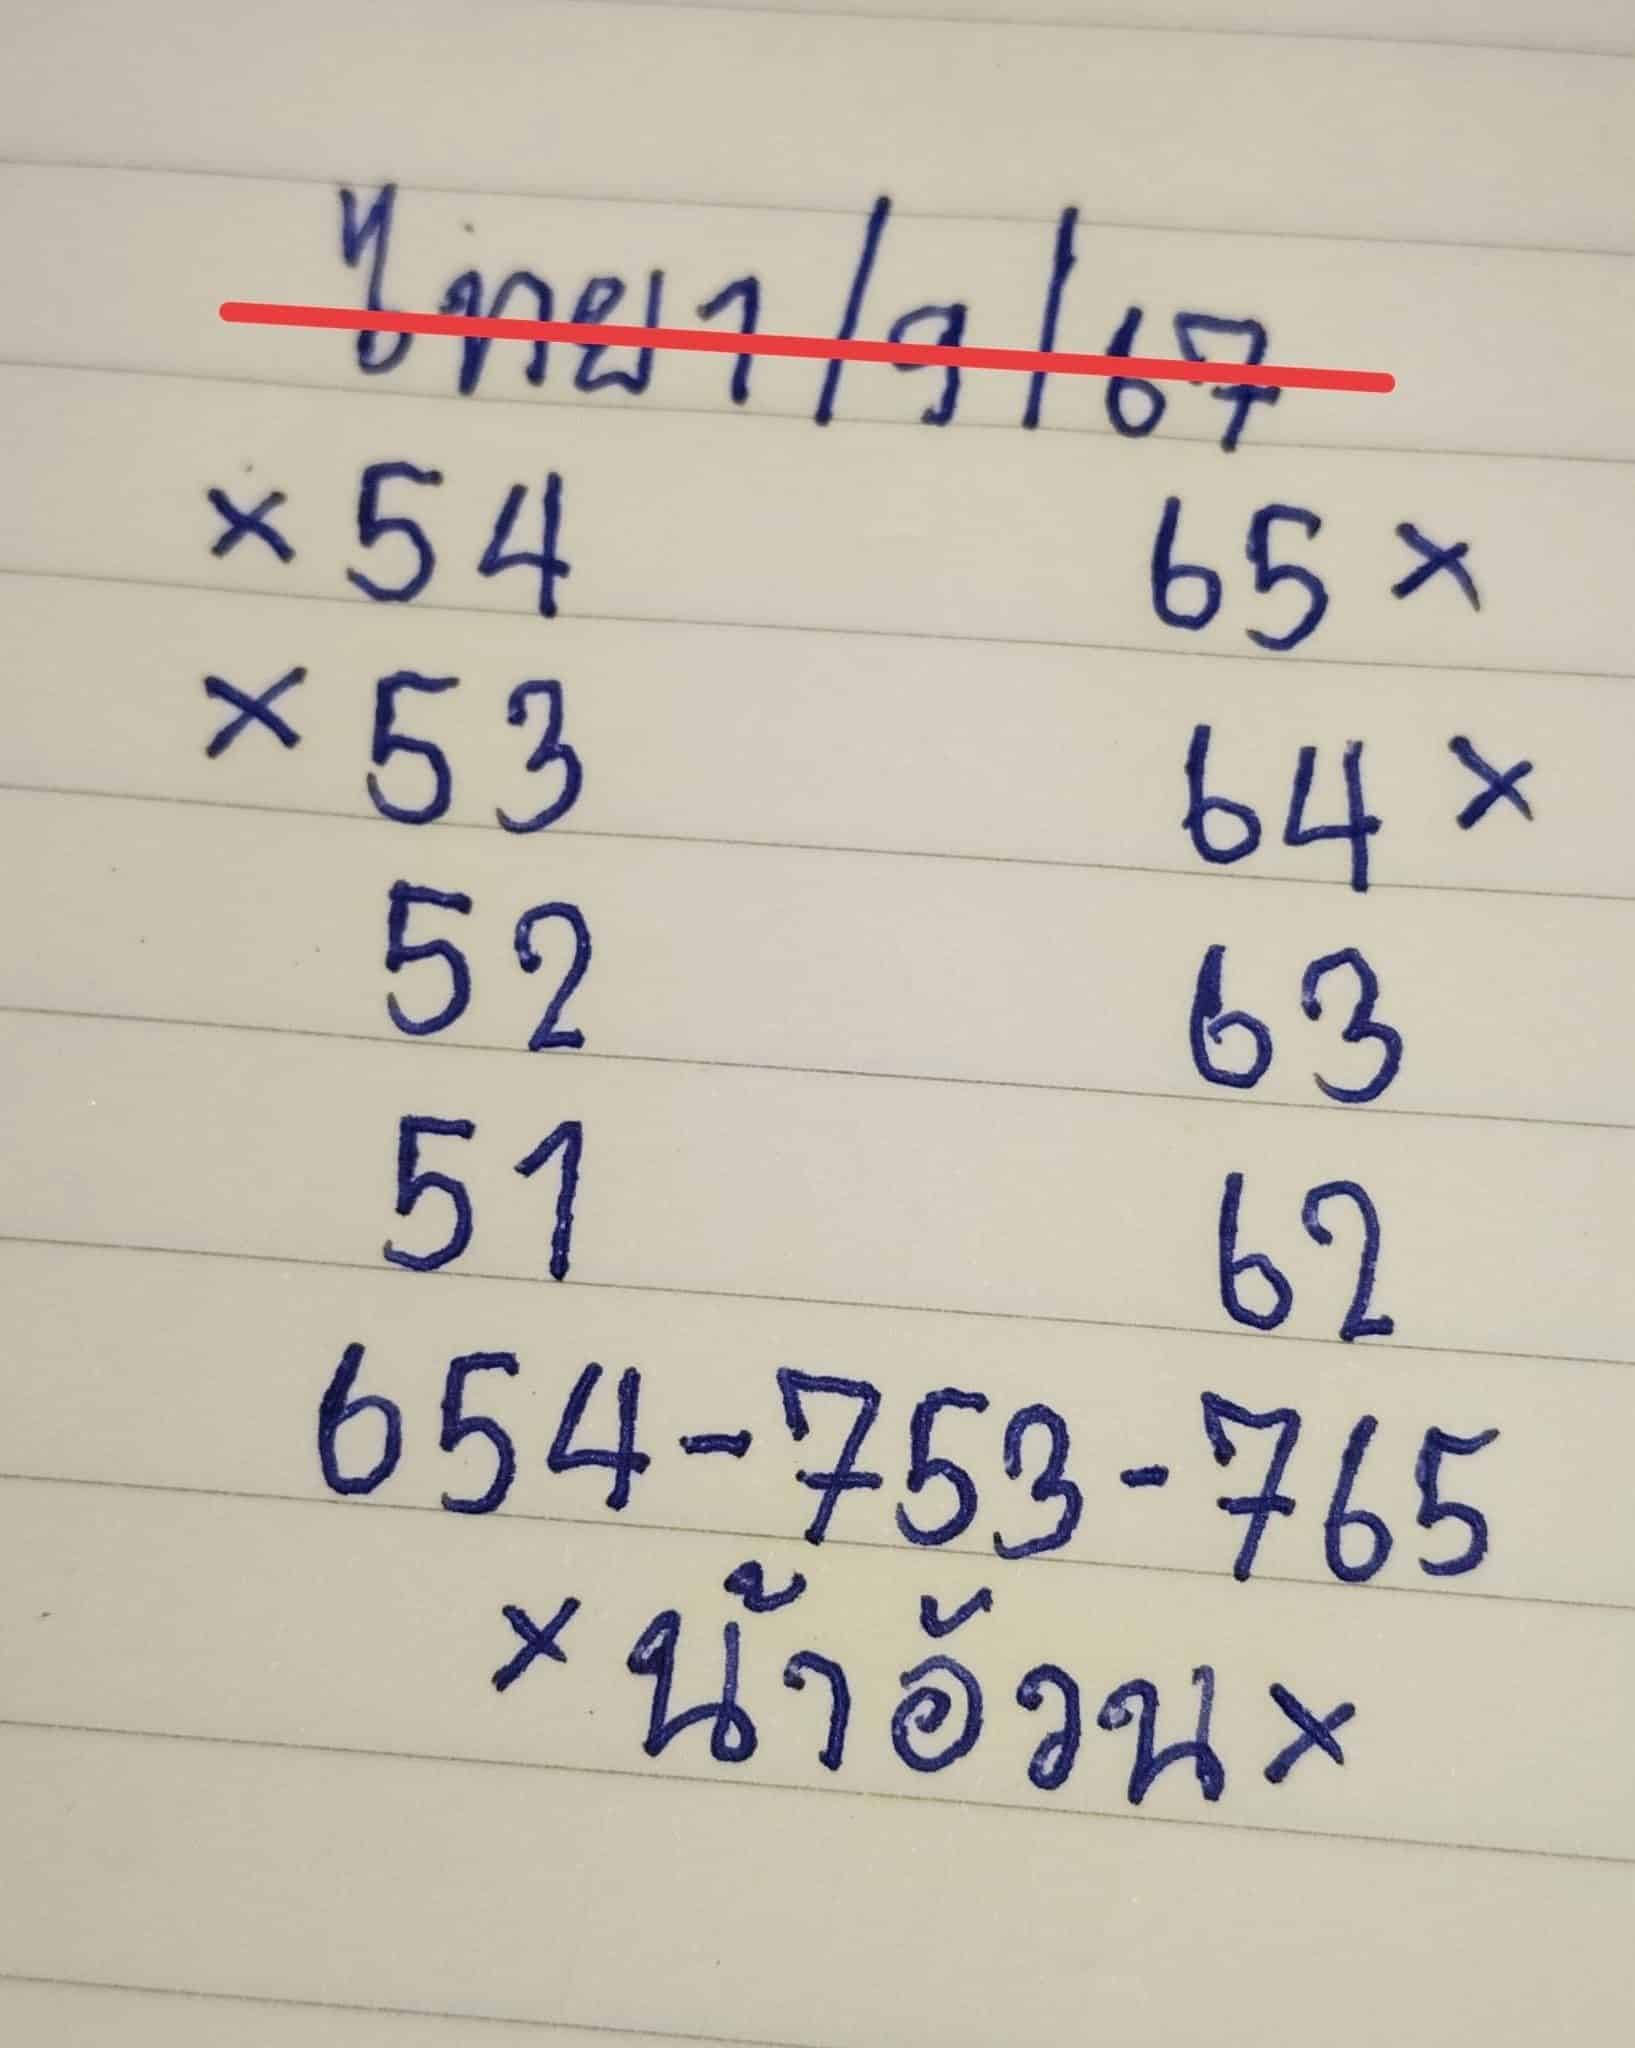 ไทย 1/9/67
× 54 65 ×
× 53 64 ×
52 63
51 62
654-753-765
× น้าอ้วน ×